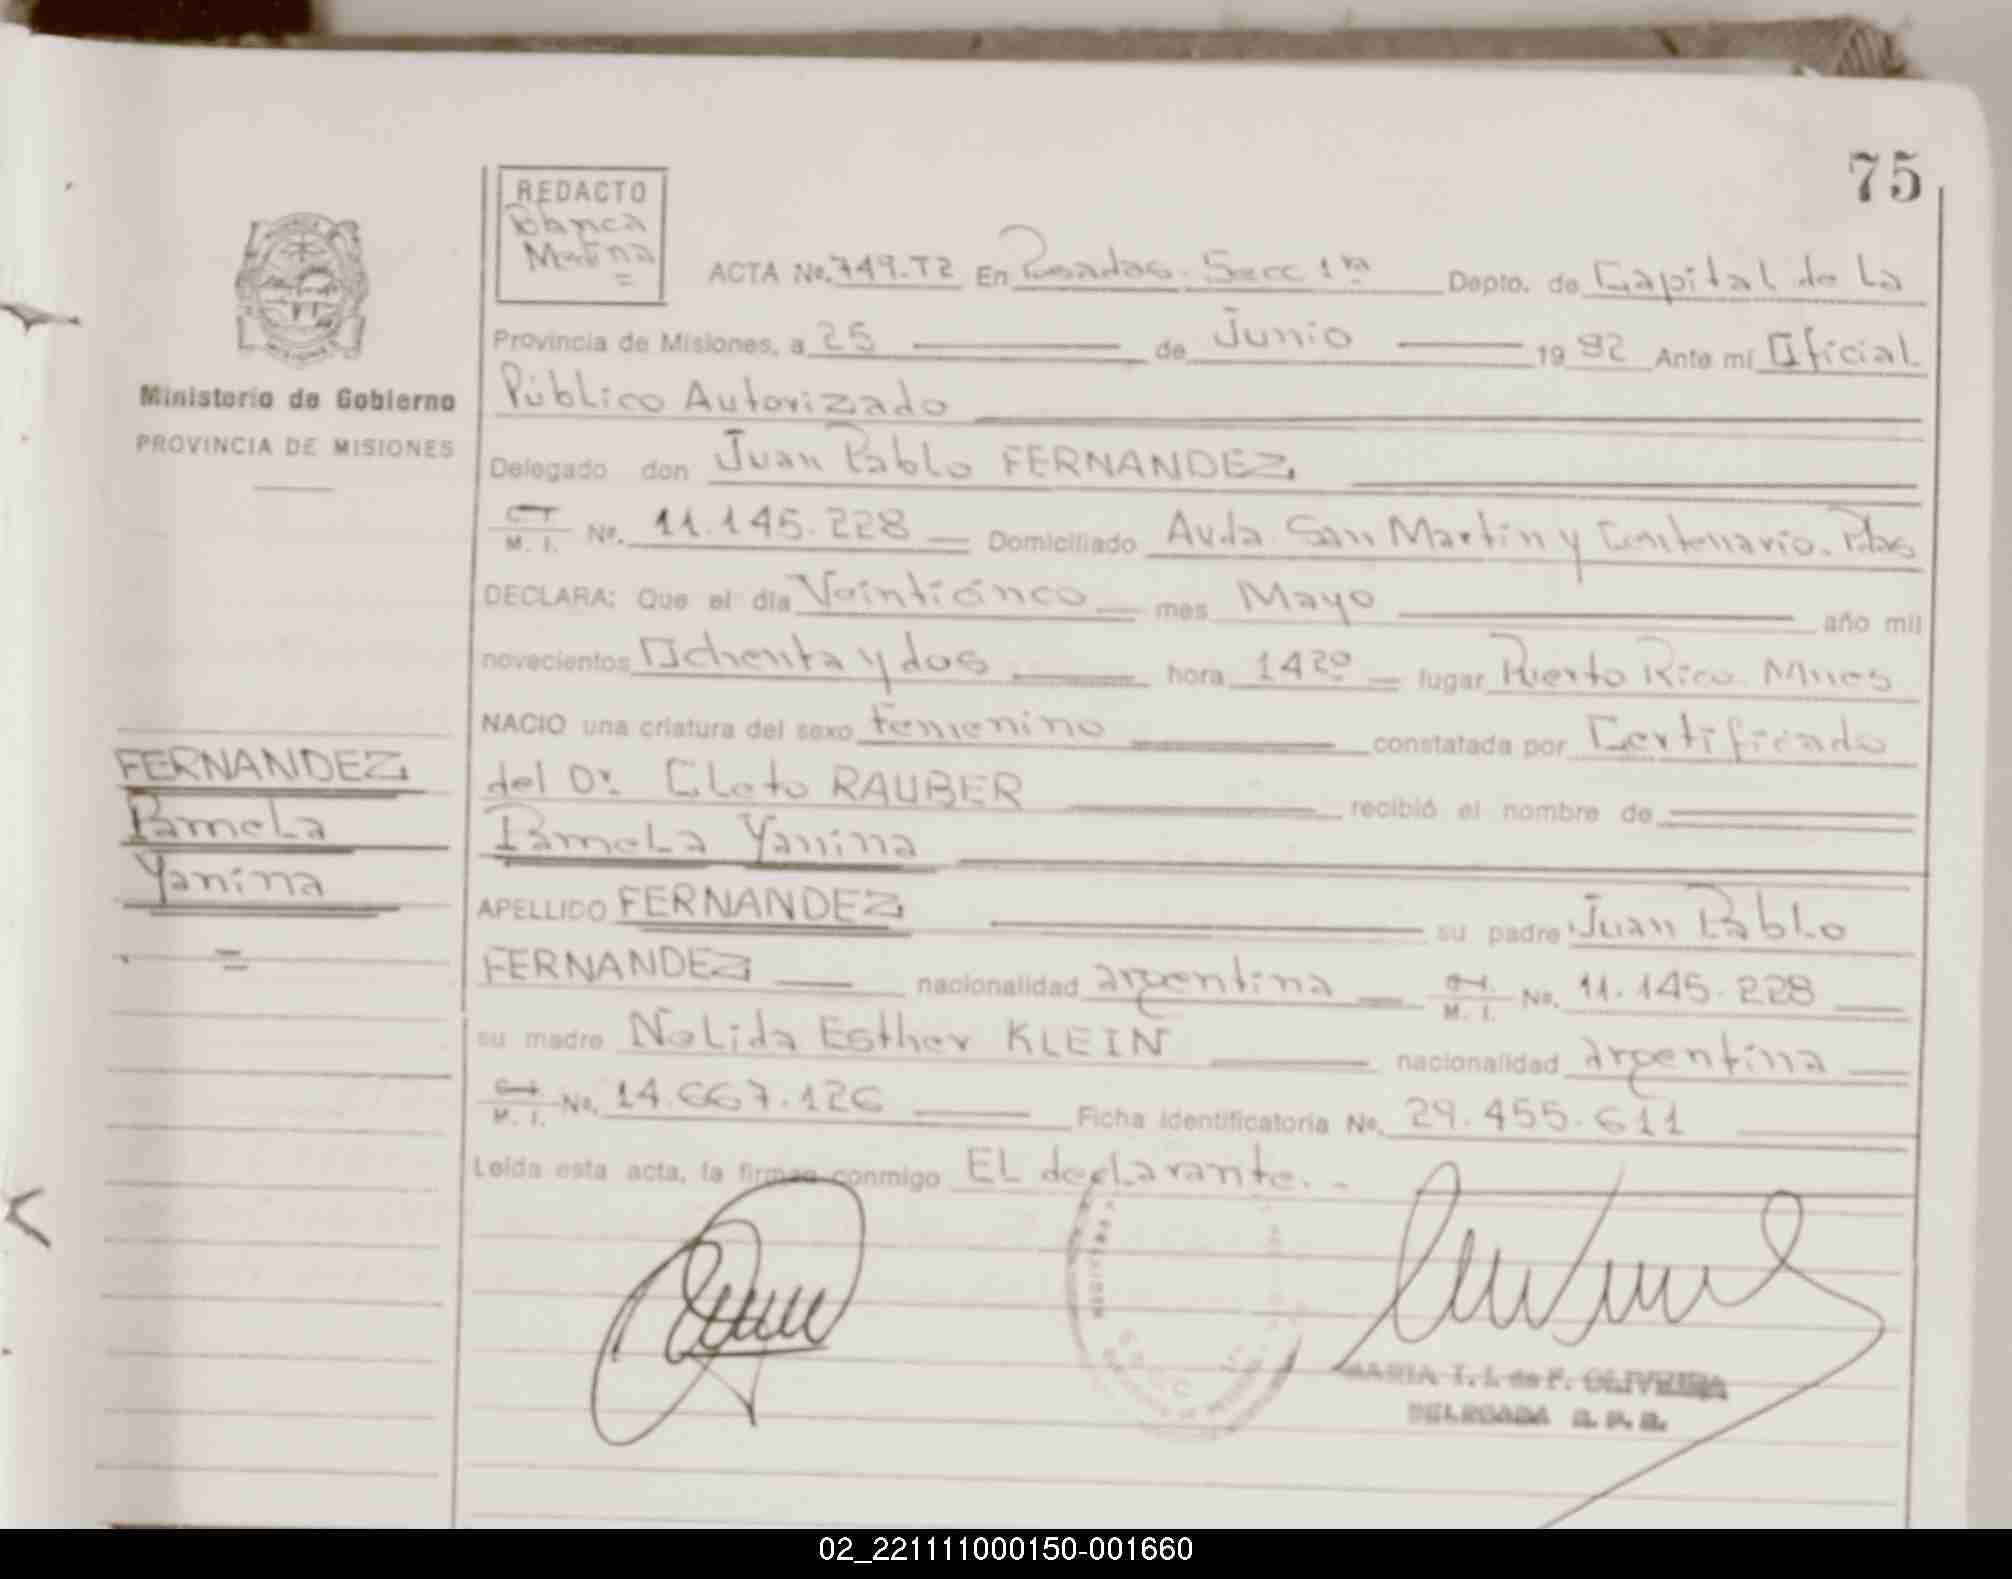 75
REDACTO
Blanca
Medina
=
ACTA No. 749.T2 En Posadas. Secc 1ra Depto. de Capital de La
Provincia de Misiones, a 25 de Junio 1982 Ante mí Oficial
Público Autorizado
Ministerio de Gobierno
PROVINCIA DE MISIONES
Delegado don Juan Pablo FERNANDEZ
M. I. No. 11.145.228 Domiciliado Avda. San Martín y Centenario. Pdas
DECLARA: Que el día Veinticinco mes Mayo año mil
novecientos Ochenta y dos hora 14 20 lugar Puerto Rico. Mnes
NACIO una criatura del sexo Femenino constatada por Certificado
del Dr. Cleto RAUBER recibió el nombre de
Pamela Yanina
FERNANDEZ
Pamela
Yanina
=
APELLIDO FERNANDEZ su padre Juan Pablo
FERNANDEZ nacionalidad argentina M. I. No. 11.145.228
su madre Nelida Esther KLEIN nacionalidad argentina
M. I. No. 14.667.126 Ficha identificatoria No. 29.455.611
Leída esta acta, la firman conmigo EL declarante. -
MARIA T. I. de F. OLIVEIRA
DELEGADA
02_221111000150-001660